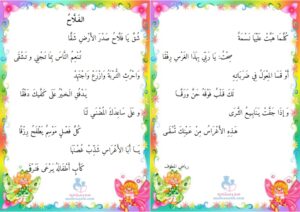 الفَلَّاحُ
شُقَّ يَا فَلَّاحُ صَدْرَ الأَرْضِ شَقَّا
تُنْعِمُ النَّاسَ بِمَا تَجْنِي وَ تَشْقَى
وَاحْرِثِ التُّرْبَةَ وَازْرَعْ وَاجْتَهِدْ
يَدْفُقُ الخَيْرُ عَلَى كَفَّيْكَ دَفْقَا
وَ عَلَى سَاعِدِكَ المُضْنَى لَنَا
كُلَّ فَصْلٍ مَوْسِمٌ يَطْفَحُ رِزْقَا
يَا أَبَا الأَغْرَاسِ شَذِّبْ غُصْنَهَا
كَأَبٍ أَطْفَالُهُ يَرْعَى
كُلَّمَا هَبَّتْ عَلَيْنَا نَسْمَةٌ
صِحْتَ: يَا رَبِّي بِهَذَا الغَرْسِ رِفْقَا
أَوْ قَسَا المِعْوَلُ فِي ضَرَبَاتِهِ
لَكَ قَلْبٌ فَوْقَهُ حَنَّ وَرَقَّا
وَ إِذَا جَفَّتْ يَنَابِيعُ الثَّرَى
هَذِهِ الأَغْرَاسُ مِنْ عَيْنَيْكَ تُسْقَى